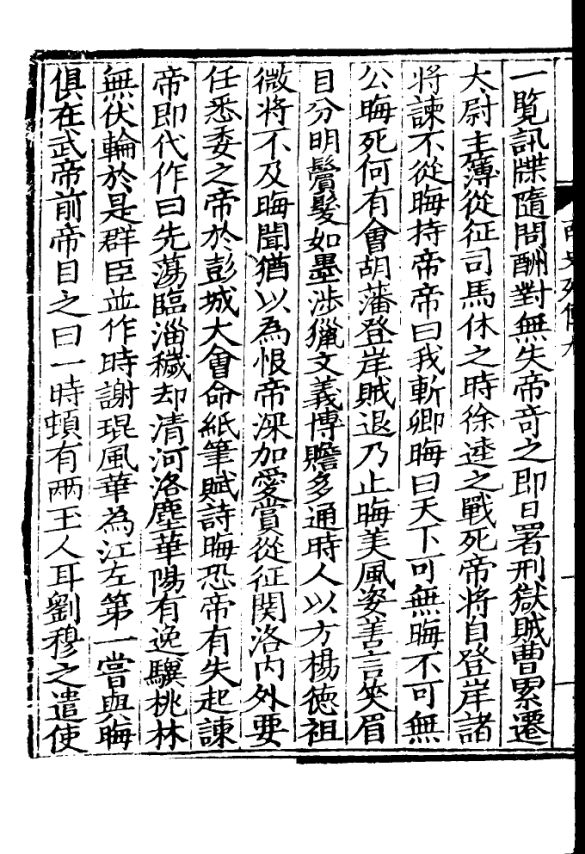 一覧訊牒隨問酬對無失帝竒之即日署刑獄賊曹累遷
大尉主薄從征司馬休之時徐逵之戰死帝將自登岸諸
將諫不從晦持帝帝曰我斬卿晦曰天下可無晦不可無
公晦死何有㑹胡藩登岸賊退乃止晦美風姿善言笑眉
目分明鬢髮如墨涉獵文義博贍多通時人以方楊德祖
微將不及晦聞猶以為恨帝深加愛賞從征関洛内外要
任悉委之帝於彭城大㑹命紙筆賦詩晦恐帝有失起諫
帝即代作曰先蕩臨淄穢却清河洛塵華陽有逸驥桃林
無伏輪於是群臣並作時謝琨風華為江左第一嘗與晦
俱在武帝前帝目之曰一時頓有兩玉人耳劉穆之遣使